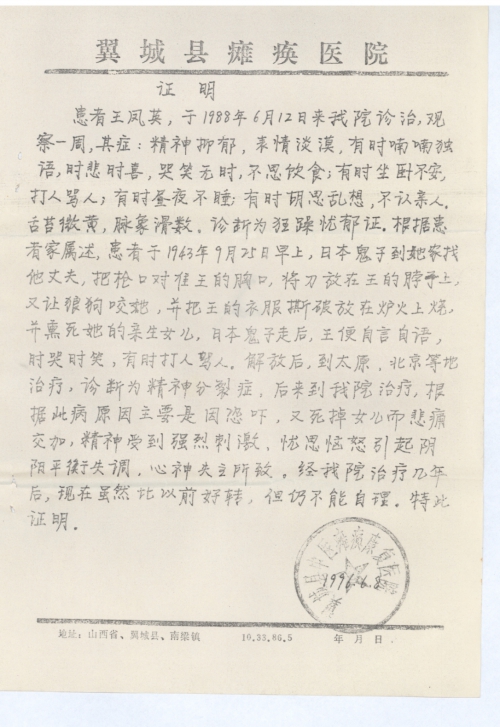 翼城县瘫痪医院
证明
患者王凤英，于1988年6月12日来我院诊治，观
察一周，其症：精神抑郁，表情淡漠，有时喃喃独
语，时悲时喜，哭笑无时，不思饮食；有时坐卧不安，
打人骂人；有时昼夜不睡；有时胡思乱想，不认亲人。
舌苔微黄，脉象滑数。诊断为狂躁忧郁证。根据患
者家属述，患者于1943年9月25日早上，日本鬼子到她家找
他丈夫，把枪口对准王的胸口，将刀放在王的脖子上，
又让狼狗咬她，并把王的衣服撕破放在炉火上烧，
并熏死她的亲生女儿，日本鬼子走后，王便自言自语，
时哭时笑，有时打人骂人。解放后，到太原、北京等地
治疗，诊断为精神分裂症，后来到我院治疗，根
据此病原因主要是因恐吓，又死掉女儿而悲痛
交加，精神受到强烈刺激、忧思恼怒引起阴
阳平衡失调、心神失主所致。经我院治疗几年
后，现在虽然比以前好转，但仍不能自理。特此
证明。
1996.6.8
地址：山西省、翼城县、南梁镇 10.33.86.5 年 月 日